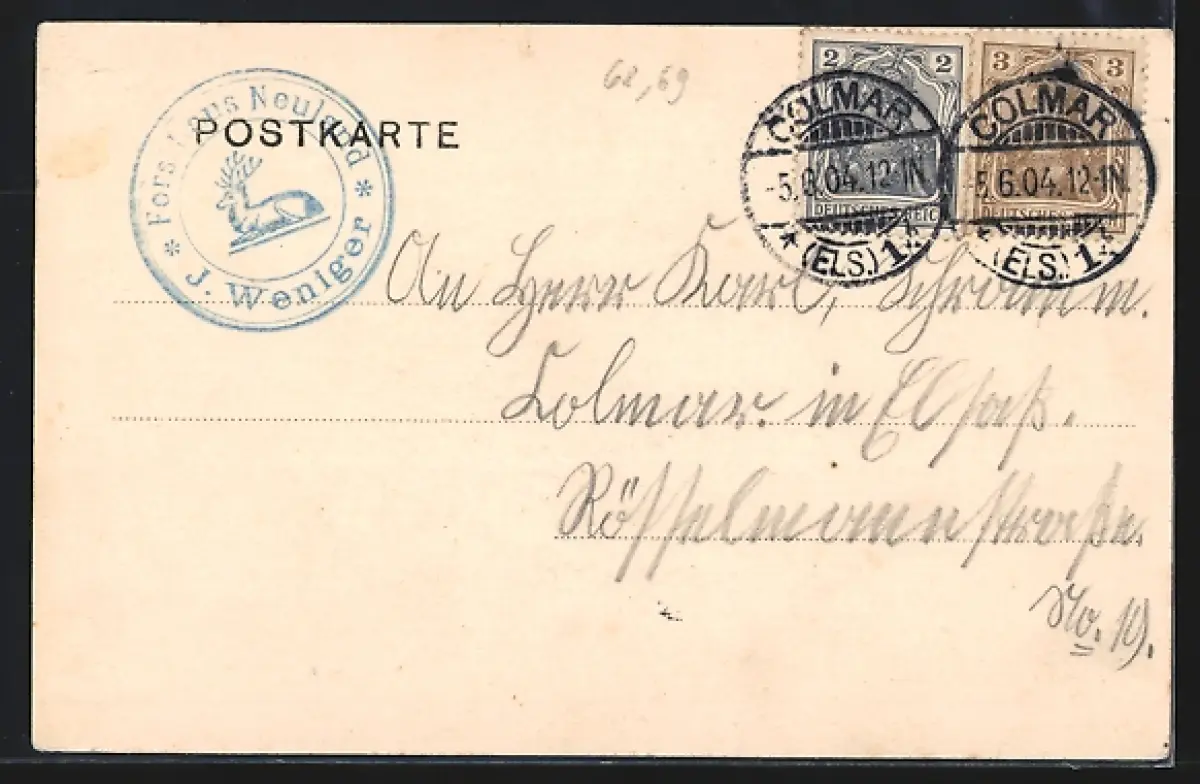 Forsthaus Neuland
* J. Weniger *
POSTKARTE
68,69
2 2
DEUTSCHES REICH
3 3
DEUTSCHES REICH
COLMAR
-5.6.04.12-1N.
* (ELS.) 1.*
COLMAR
-5.6.04.12-1N.
* (ELS.) 1.*
An Herrn Karl, Schramm.
Colmar. in Elsaß.
Rösselmannstraße.
No. 19.